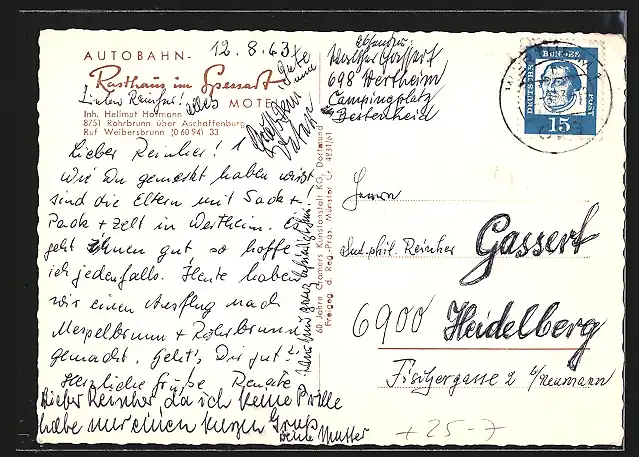 AUTOBAHN-
Rasthaus im Spessart
MOTEL
Inh. Hellmut Hofmann
8751 Rohrbrunn über Aschaffenburg
Ruf Weibersbrunn (0 60 94) 33
12.8.63
Lieber Reinher!
Lieber Reinher!
Wie Du gemerkt haben wirst
sind die Eltern mit Sack +
Pack + Zelt in Wertheim. Es
geht ihnen gut so hoffe
ich jedenfalls. Heute haben
wir einen Ausflug nach
Mespelbrunn + Rohrbrunn
gemacht. Geht's Dir gut?
Herzliche Grüße Renate
Lieber Reinher da ich keine Brille
habe nur einen kurzen Gruß
Deine Mutter
alles Gute
und
Dein
Vater
60 Jahre Cramers Kunstanstalt KG, Dortmund
Freigeg. d. Reg.-Präs. Münster Cr. 4231/61
Absender
Walther Gassert
698 Wertheim
Campingplatz
Bestenheid
DEUTSCHE BUNDESPOST
15
Herrn
stud. phil. Reinher Gassert
6900 Heidelberg
Fischergasse 2 b/Neumann
+ 25-7